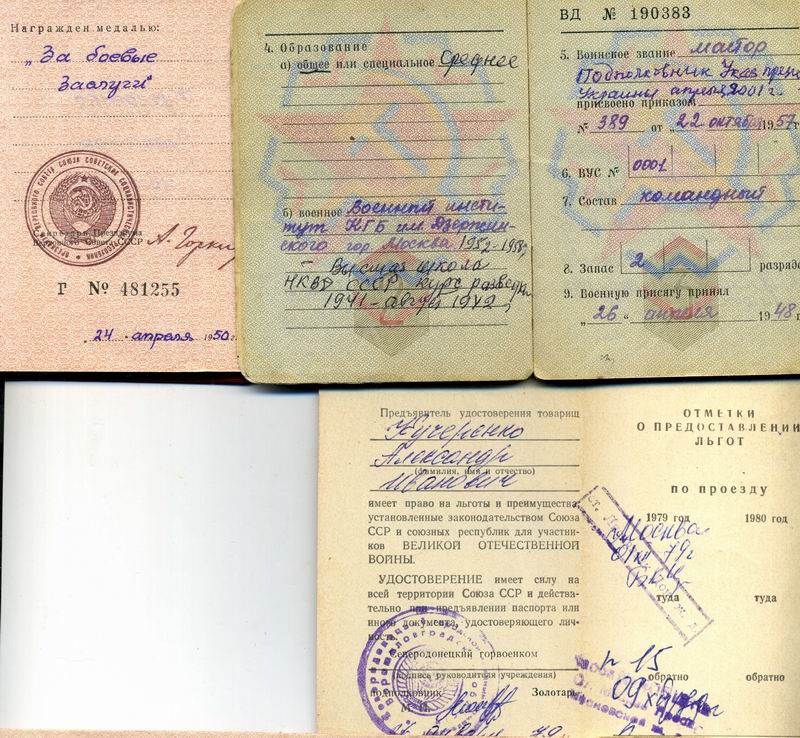 Награжден медалью:
„За боевые
Заслуги"
ПРЕЗИДИУМ ВЕРХОВНОГО СОВЕТА СОЮЗА СОВЕТСКИХ СОЦИАЛИСТИЧЕСКИХ
Секретарь Президиума
Верховного Совета СССР
А. Горкин
Г № 481255
„24" апреля 1950 г.
4. Образование
а) общее или специальное Среднее
б) военное Военный инсти-
тут КГБ им Дзержин-
ского гор. Москва 1952-1958,
– Высшая школа
НКВД СССР курс разведки
1941 – август 1942,
ВД № 190383
5. Воинское звание майор
Подполковник Указ през
Украины апрель 2001 г.
присвоено приказом
№ 389 от „22 октября 1957 г
6. ВУС № 0001
7. Состав командный
8. Запас 2 разряда
9. Военную присягу принял
„26" апреля 1948 г
Предъявитель удостоверения товарищ
Кучеренко
Александр
(фамилия, имя и отчество)
Иванович
имеет право на льготы и преимущества,
установленные законодательством Союза
ССР и союзных республик для участни-
ков ВЕЛИКОЙ ОТЕЧЕСТВЕННОЙ
ВОЙНЫ.
УДОСТОВЕРЕНИЕ имеет силу на
всей территории Союза ССР и действи-
тельно при предъявлении паспорта или
иного документа, удостоверяющего лич-
ность.
Северодонецкий горвоенком
(подпись руководителя учреждения)
подполковник Золотарь
М. П.
ОТМЕТКИ
О ПРЕДОСТАВЛЕНИИ
ЛЬГОТ
по проезду
1979 год 1980 год
Москва
туда туда
№ 15
обратно обратно
Московская